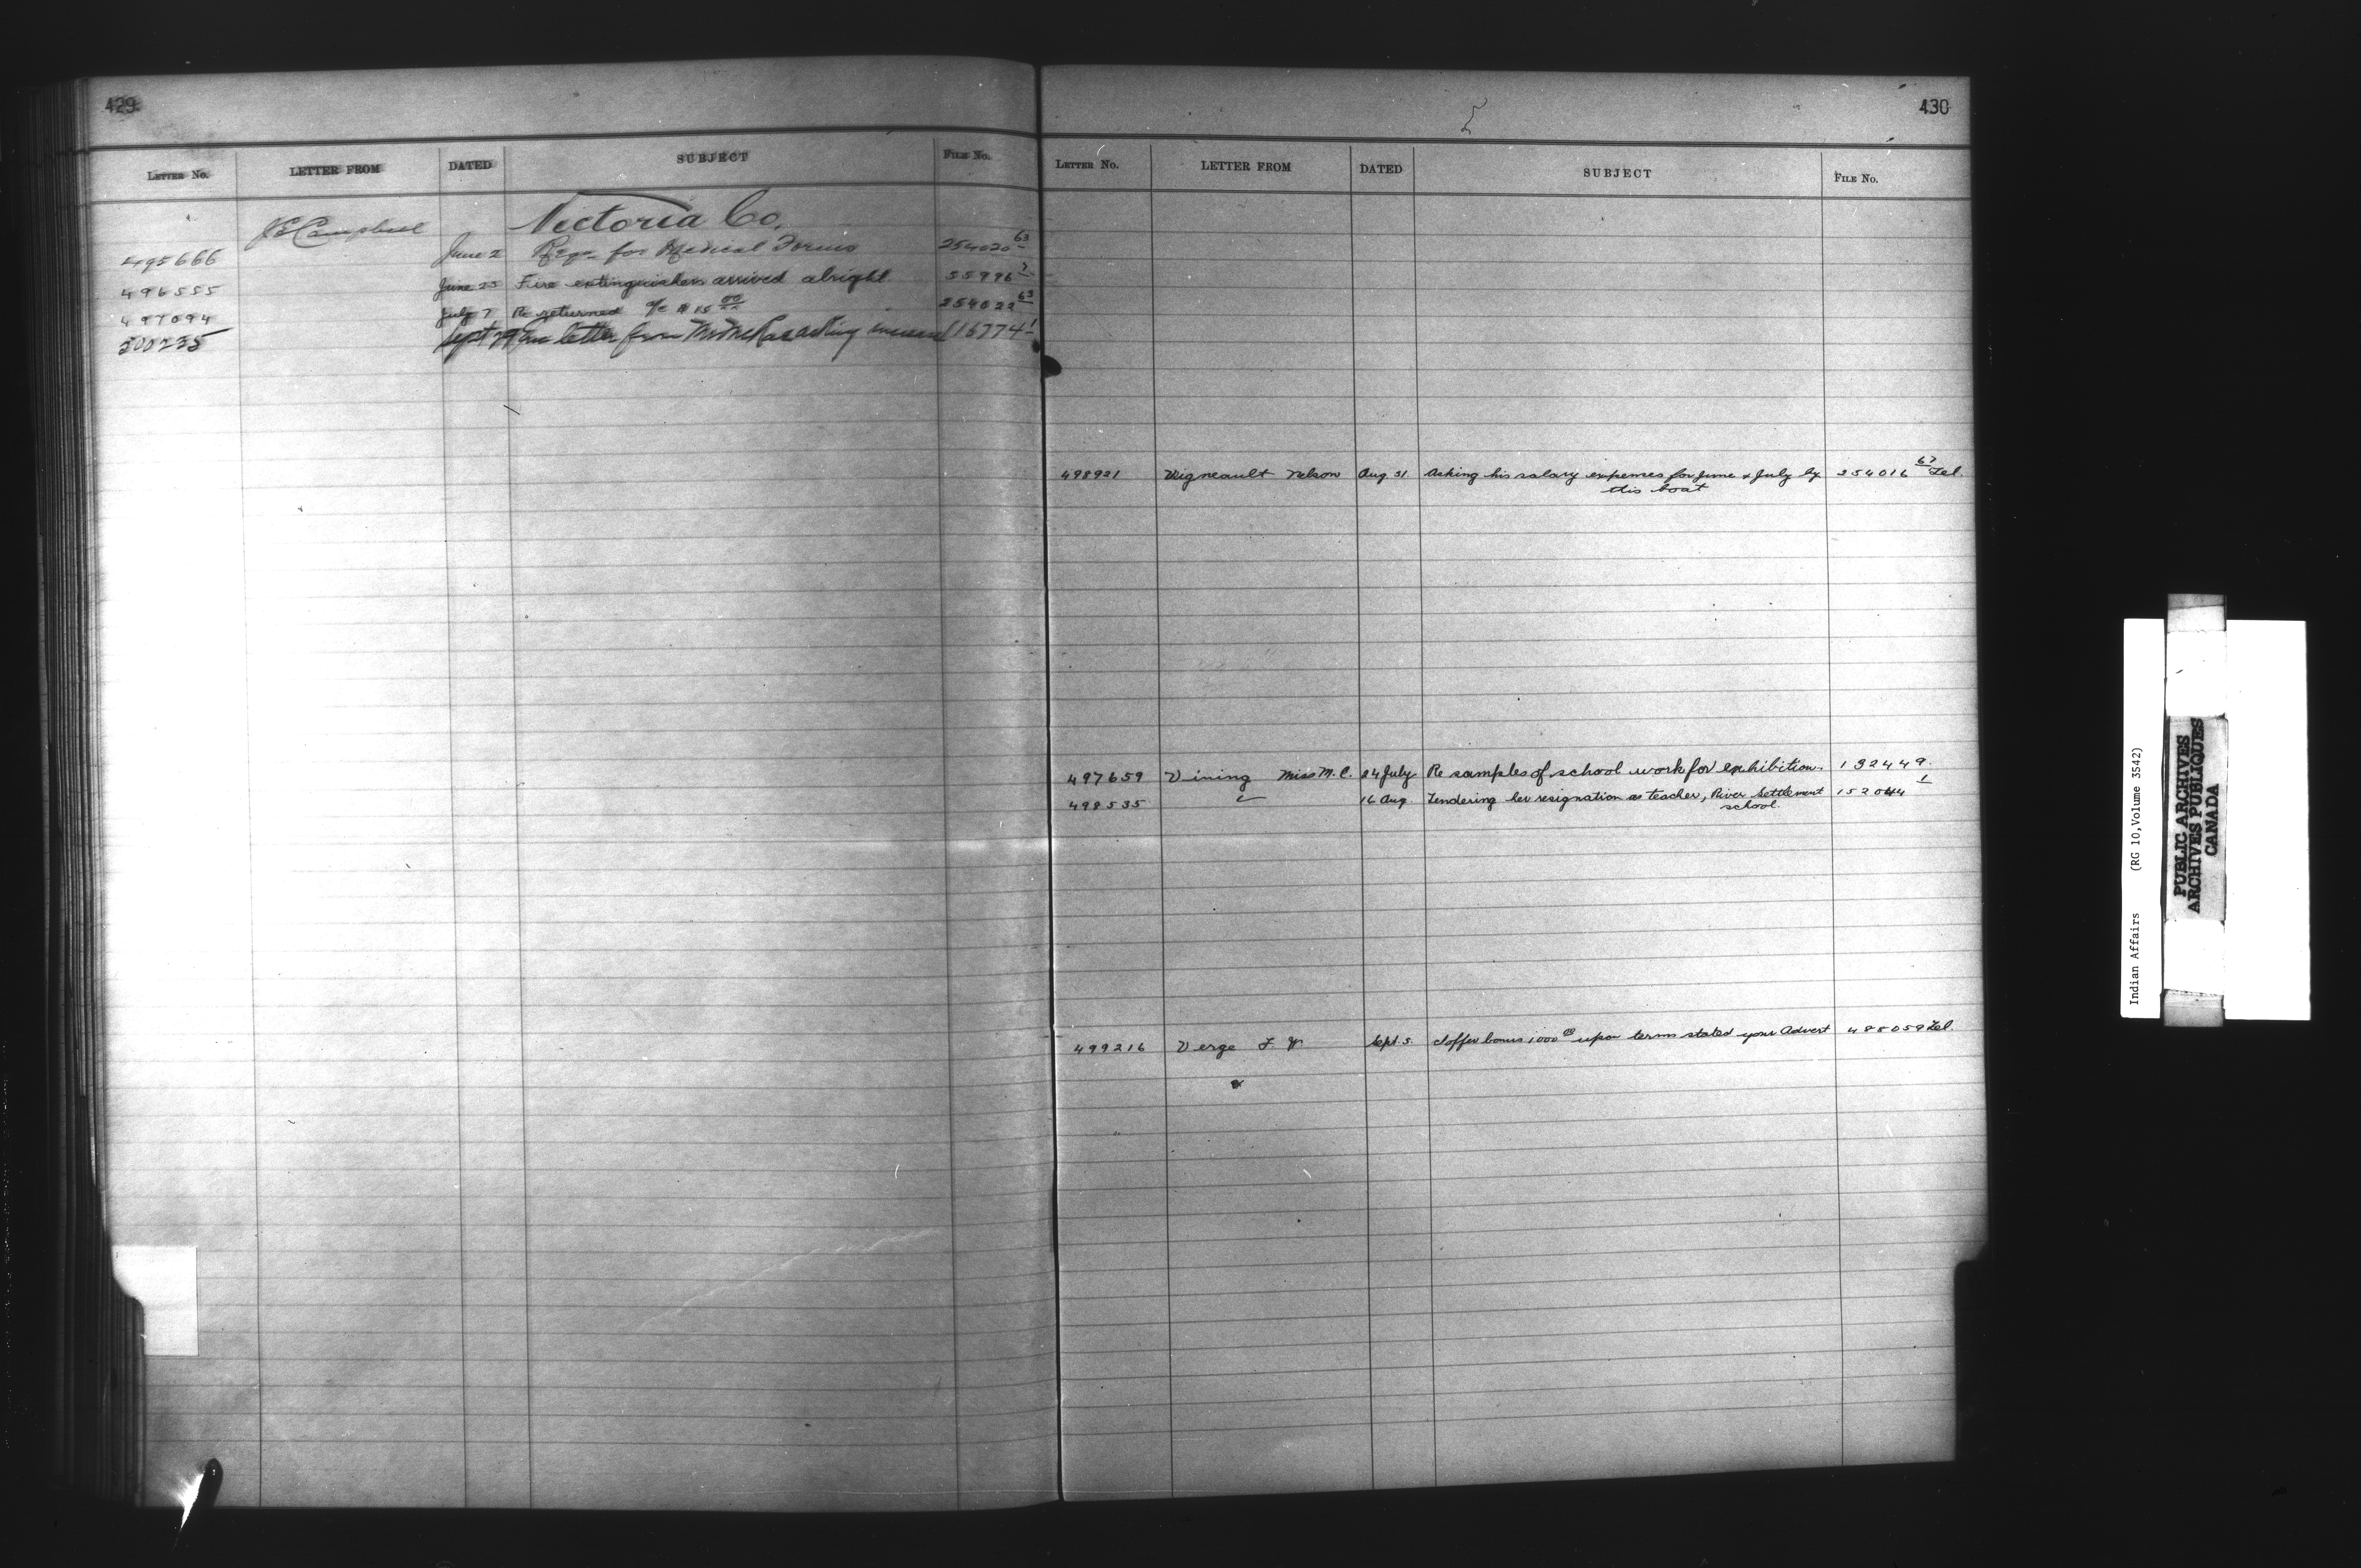 429
LETTER No. LETTER FROM DATED SUBJECT FILE No.
J E Campbell Victoria Co.
495666 June 2 Reqn for Medical Forms 254020 63
496555 June 23 Fire extinguishers arrived alright 55996 7
497094 July 7 Re returned a/c $15 00 254022 63
500235 Sept 29 letter from asking 16774 1
430
LETTER No. LETTER FROM DATED SUBJECT FILE No.
498921 Vigneault Nelson Aug. 31. Asking his salary expenses for June & July by 254016 67 Tel.
this boat
497659 Vining Miss M. C. 24 July Re samples of school work for exhibition. 132449.
498535 16 Aug. Tendering her resignation as teacher, River Settlement 152044 1
school.
499216 Verge Sept. 5. I offer bonus 1000 upon terms stated your Advert 488059 Tel.
Indian Affairs (RG 10, Volume 3542)
PUBLIC ARCHIVES
ARCHIVES PUBLIQUES
CANADA